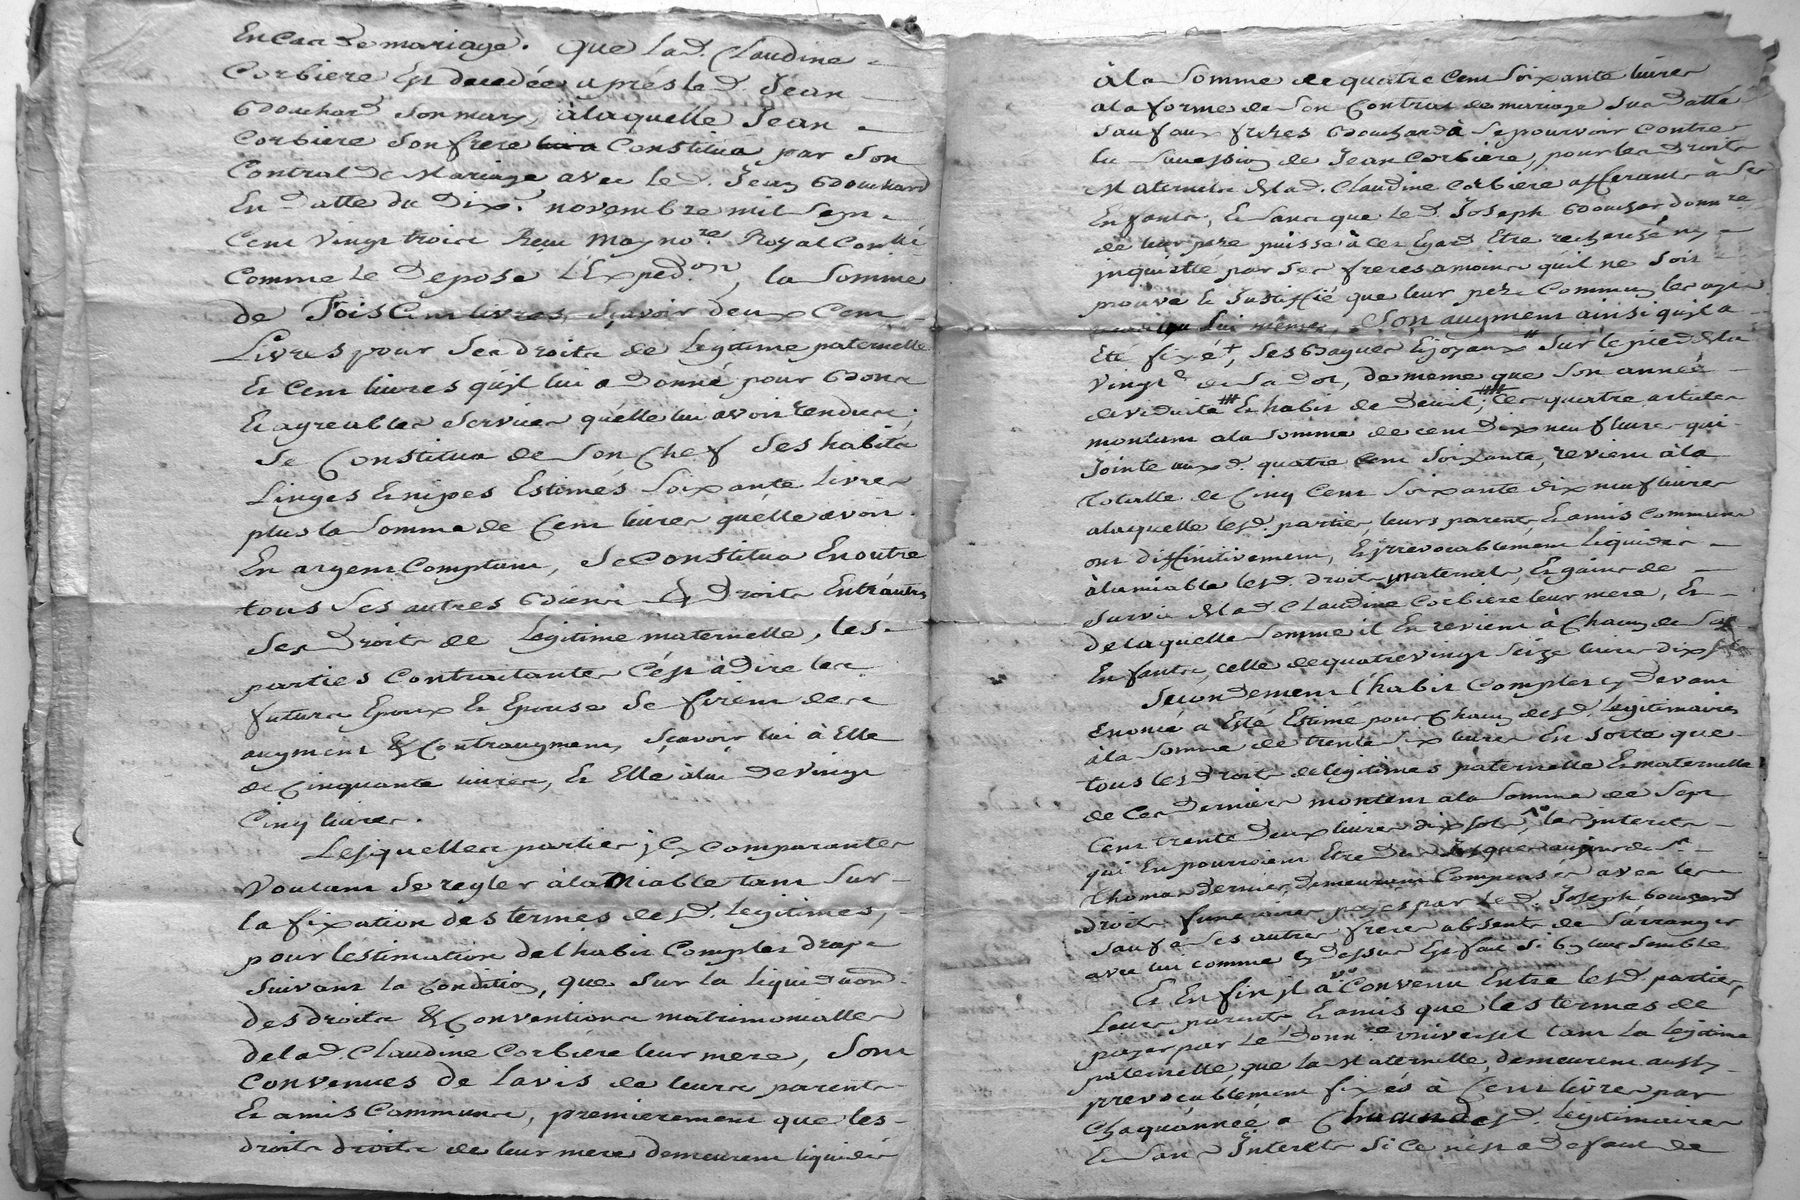 En Cas de mariage. Que lad. Claudine
Corbiere Est decedée après led. Jean
Bouchard son mary, à laquelle Jean
Corbiere son frere Constitua par son
Contrat de Mariage avec led. Jean Bouchard
En datte du Dix novembre mil sept
Cent vingt trois Reçu May no.re Royal
Comme le depose l'Exped.on, la somme
de Trois Cent livres, sçavoir deux Cent
Livres pour ses droits de legitime paternelle
Et Cent livres qu'jl lui a donné pour bons
Et agreables services qu'elle lui avoit rendus;
Se Constitua de son Chef ses habits
Linges Et nipes Estimés soixante livres
plus la somme de Cent livres qu'elle avoit
En argent Comptant, se Constitua En outre
tous ses autres biens & droits Entr'autres
ses droits de legitime maternelle, les
parties Contraitantes C'est à dire les
futurs Epoux Et Epouse se firent des
augment & Contraugment, sçavoir lui à Elle
de Cinquante livres, Et Elle à lui de vingt
Cinq livres.
Lesquelles parties jcy comparantes
voulant se regler à la miable tant sur
la fixation des termes desd. legitimes,
pour lestimation de l'habit Complet drap
suivant la Condition, que sur la liquidaon
des droits & Conventions matrimonialles
de lad. Claudine Corbiere leur mere, sont
Convenues de lavis de leurs parents
Et amis Communs, premierement que les
droits droits de leur mere demeurent liquidés
à la somme de quatre Cent soixante livres
a la forme de son Contrat de mariage susd datté
sauf aux freres Bouchard à se pourvoir Contre
la succession de Jean Corbiere, pour les droits
Maternels de lad. Claudine Corbiere afferants à ses
Enfants, Et sans que led. Joseph Bouchar donn.re
de leur pere puisse à cet Egard Etre recherché ny
jnquietté par ses freres a moins qu'il ne soit
prouvé Et Justiffié que leur pere Commun les aye
lui même, Son augment ainsi qu'jl a
été fixé +, ses Bagues Et joyaux # sur le pied de la
vingt.e de sa dot, de meme que son année
de viduité Et habit de deuil; Ces quatre articles
montant a la somme de cent dix neuf livres qui
Jointe auxd. quatre Cent soixante, revient à la
totalle de Cinq Cent soixante dix neuf livres
a laquelle lesd. parties leurs parents Et amis Communs
ont diffinitivement, Et jrrevocablement liquidés
à lamiable lesd. droits maternels, Et gains de
survie de lad. Claudine Corbiere leur mere, Et
de laquelle somme il En revient à Chacun de ses
Enfants, celle de quatre vingt seize livres dix sols
Secondement l'habit Complet cy devant
Enoncé a Esté Estimé pour Chacun desd. legitimaires
à la somme de trente six livres En sorte que
tous les droits de legitimes paternelle Et maternelle
de Ces derniers montent a la somme de Sept
Cent trente deux livres dix sols, les jnterets
qui En pourroient Etre dus jusques aujour de St
Thomas dernier, demeurant Compensés avec les
droits funeraires payés par led. Joseph Bouchard
sauf a ses autres freres absents de s'arranger
avec lui comme cy dessus Est fait si bon leur semble
Et Enfin jl a Convenu Entre lesd. parties,
Leurs parents Et amis que les termes de
payer par le donn.re universel tant la legitime
paternelle, que la Maternelle, demeurent aussy
jrrevocablement fixés à Cent livres par
Chaqu'année a Chacun desd. legitimaires
Et sans Interets si ce n'est a defaut de